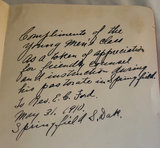 Compliments of the
Young Men's Class
as a token of appreciation
for friendly counsel
and instruction during
his pastorate in Springfield.
To Rev. E. C. Ford.
May 31, 1910.
Springfield S. Dak.